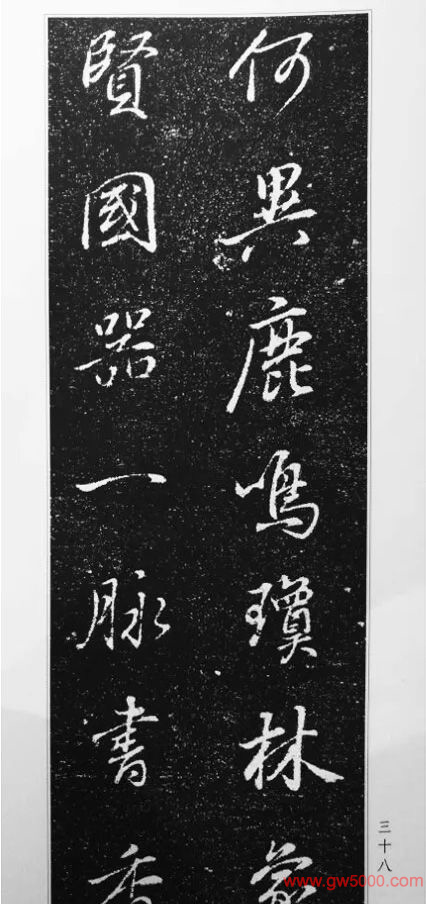 何異鹿鳴瓊林
賢國器一脉書香
三十八
www.gw5000.com